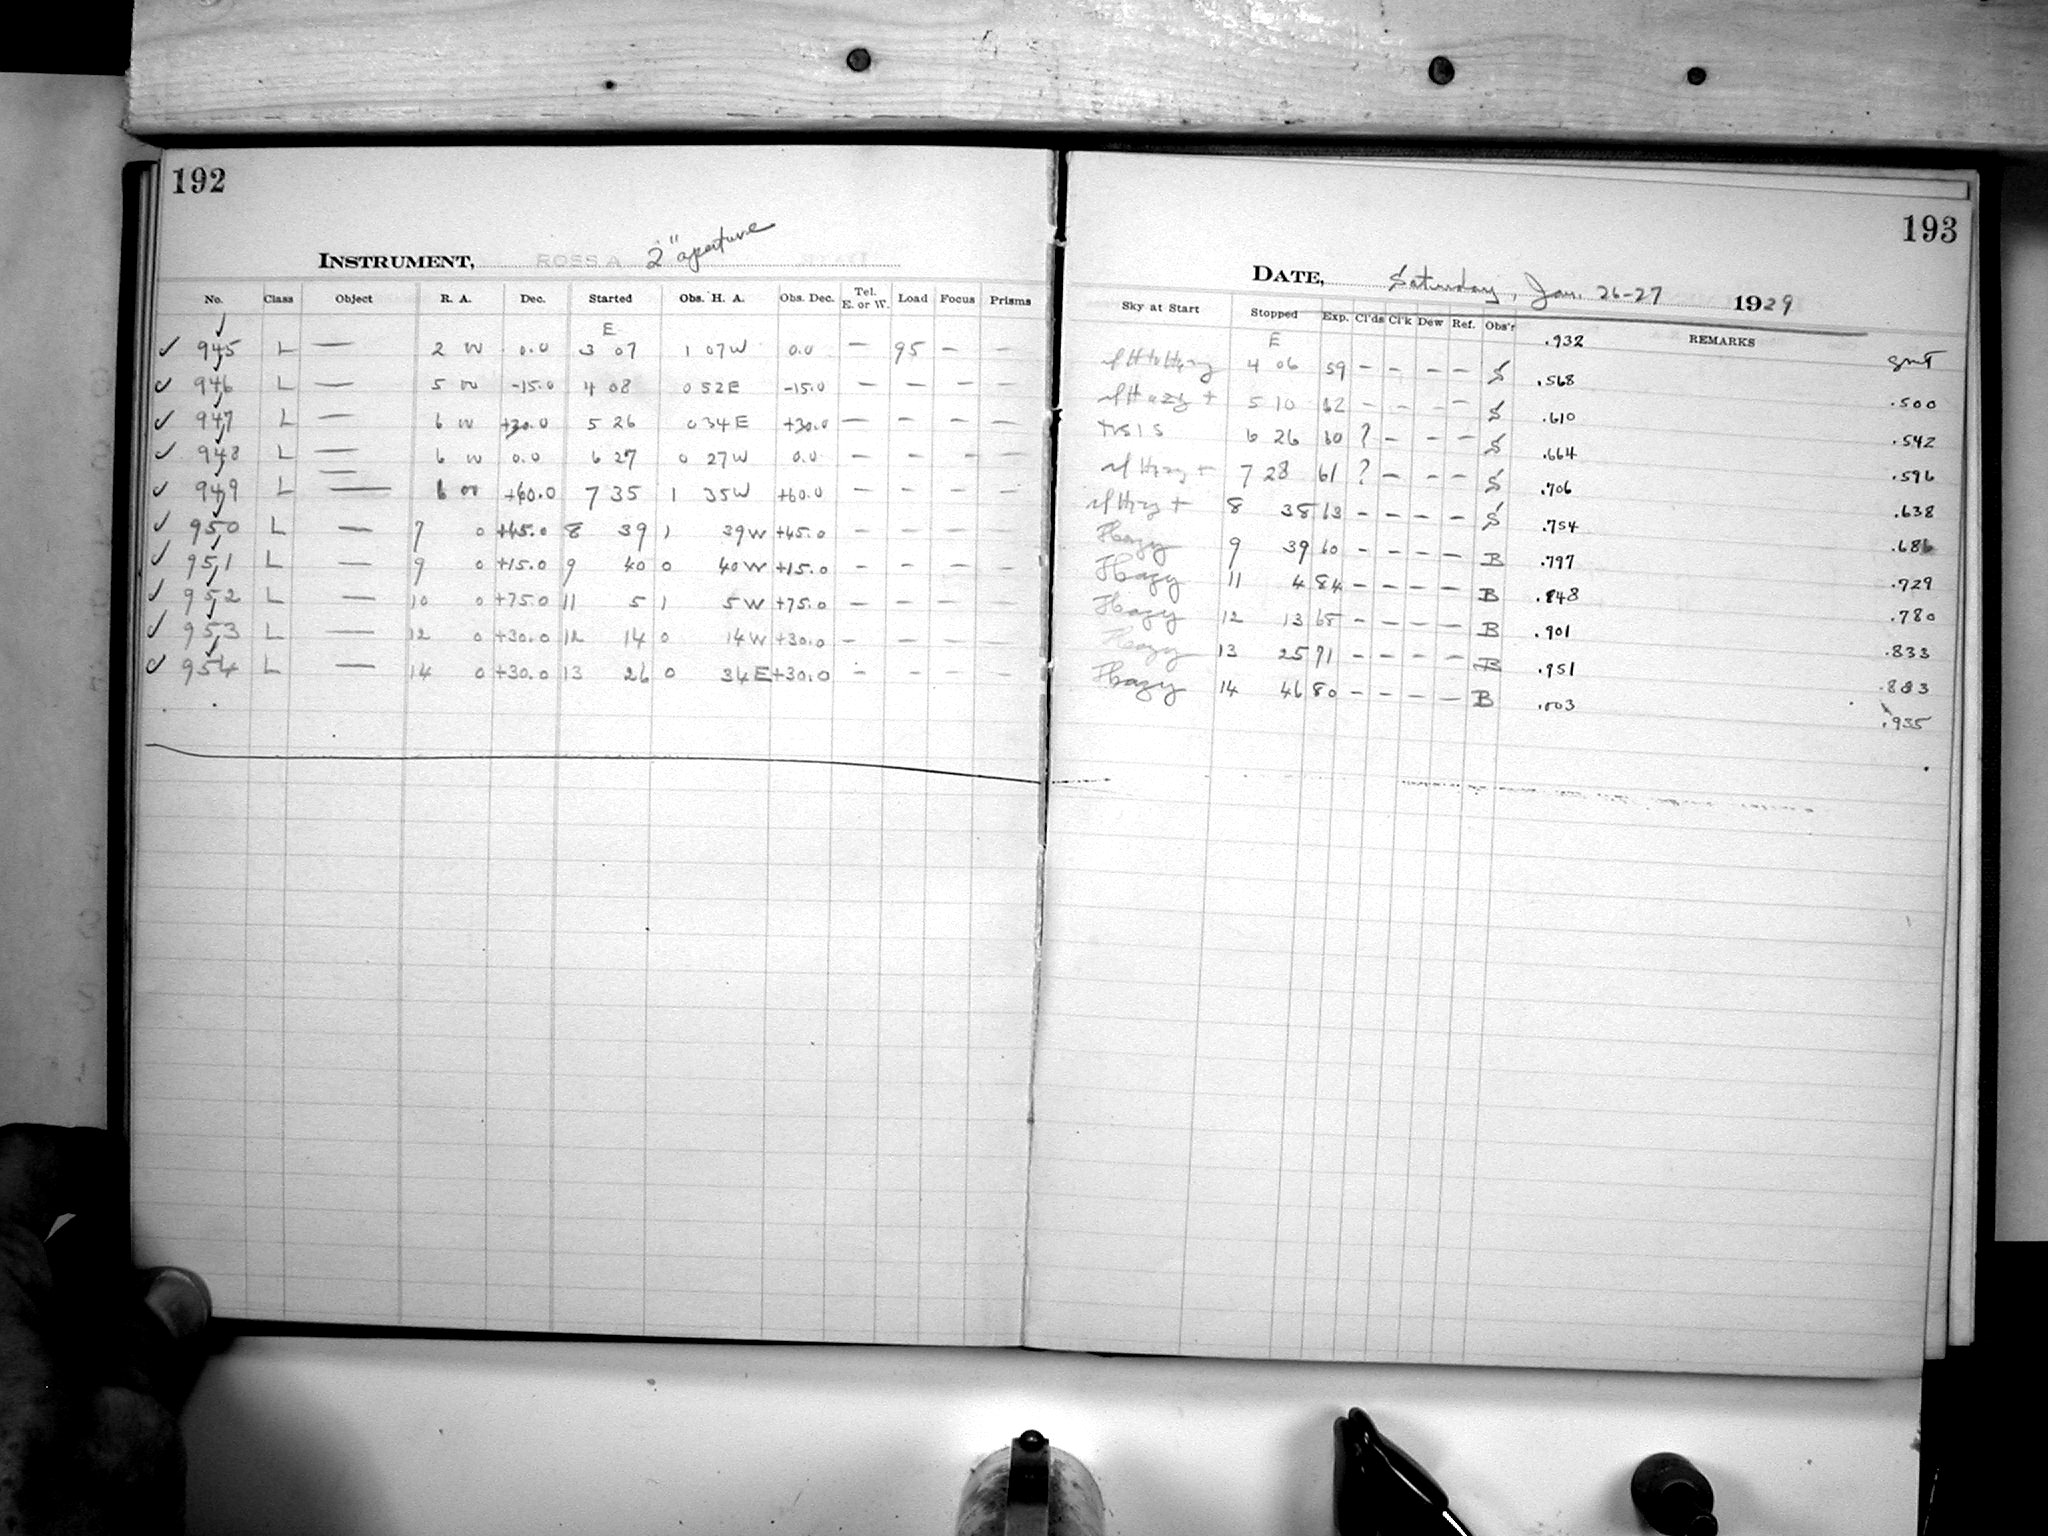 192
INSTRUMENT, ROSS A 2" aperture
No. Class Object R. A. Dec. Started Obs. H. A. Obs. Dec. Tel. E. or W. Load Focus Prisms
E
✓ 945 L — 2 00 0.0 3 07 1 07W 0.0 — 95 — —
✓ 946 L — 5 00 -15.0 4 08 0 52E -15.0 — — — —
✓ 947 L — 6 00 +30.0 5 26 0 34E +30.0 — — — —
✓ 948 L — 6 00 0.0 6 27 0 27W 0.0 — — — —
✓ 949 L — 6 00 +60.0 7 35 1 35W +60.0 — — — —
✓ 950 L — 7 0 +45.0 8 39 1 39W +45.0 — — — —
✓ 951 L — 9 0 +15.0 9 40 0 40W +15.0 — — — —
✓ 952 L — 10 0 +75.0 11 5 1 5W +75.0 — — — —
✓ 953 L — 12 0 +30.0 12 14 0 14W +30.0 — — — —
✓ 954 L — 14 0 +30.0 13 26 0 34E +30.0 — — — —
193
DATE, Saturday, Jan. 26-27 1929
Sky at Start Stopped Exp. Cl'ds Cl'k Dew Ref. Obs'r REMARKS
E .932 GMT
4 06 59 — — — — S .568 .500
5 10 62 — — — — S .610 .542
6 26 60 ? — — — S .664 .596
7 28 61 ? — — — S .706 .638
8 38 63 — — — — S .754 .686
Hazy 9 39 60 — — — — B .797 .729
Hazy 11 4 84 — — — — B .848 .780
Hazy 12 13 — — — — B .901 .833
Hazy 13 25 71 — — — — B .951 .883
Hazy 14 46 80 — — — — B .003 .935